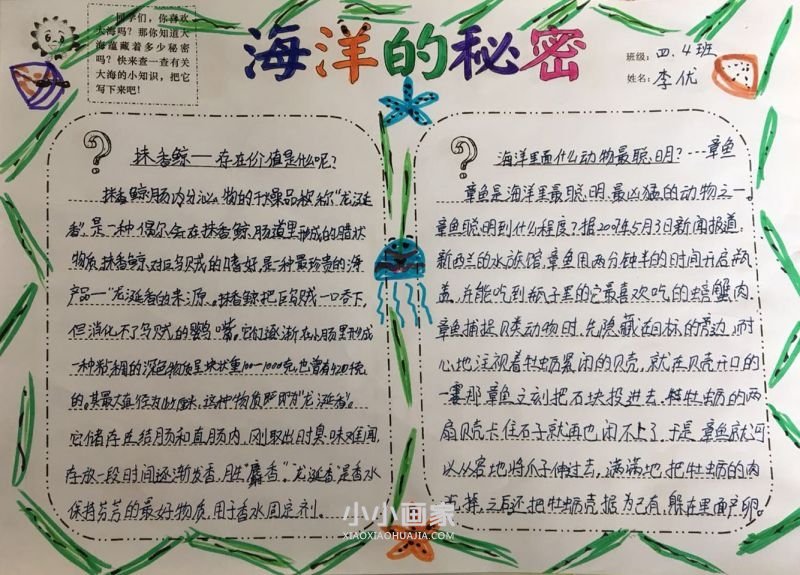 同学们，你喜欢
大海吗？那你知道大
海蕴藏着多少秘密
吗？快来查一查有关
大海的小知识，把它
写下来吧！
海洋的秘密
班级：四.4班
姓名：李优
抹香鲸——存在价值是什么呢？
抹香鲸肠内分泌物的干燥品被称“龙涎
香”，是一种偶尔会在抹香鲸肠道里形成的腊状
物质，抹香鲸对巨乌贼的嗜好，是一种最珍贵的海
产品一“龙涎香的来源。抹香鲸把巨乌贼一口吞下，
但消化不了乌贼的鹦嘴。它们逐渐在小肠里形成
一种粘稠的深色物质呈块状重100—1000克，也曾有420千克
的。其最大直径为165厘米，这种物质即为“龙涎香”。
它储存在结肠和直肠内，刚取出时臭味难闻，
存放一段时间逐渐发香，胜“麝香”。龙涎香是香水
保持芬芳的最好物质，用于香水固定剂。
海洋里面什么动物最聪明？……章鱼
章鱼是海洋里最聪明、最凶猛的动物之一。
章鱼聪明到什么程度？据2007年5月3日新闻报道：
新西兰的水族馆，章鱼用两分钟半的时间开启瓶
盖，并能吃到瓶子里的它最喜欢吃的螃蟹肉。
章鱼捕捉贝类动物时，先隐藏在目标的旁边，耐
心地注视着牡蛎紧闭的贝壳，就在贝壳开口的
一霎那章鱼立刻把石块投进去，牡蛎的两
扇贝壳卡住石子就再也闭不上了，于是章鱼就可
以从容地将爪子伸过去，满满地把牡蛎的肉
吃掉，之后还把牡蛎壳据为己有，躲在里面产卵。
小小画家
XIAOXIAOHUAJIA.COM